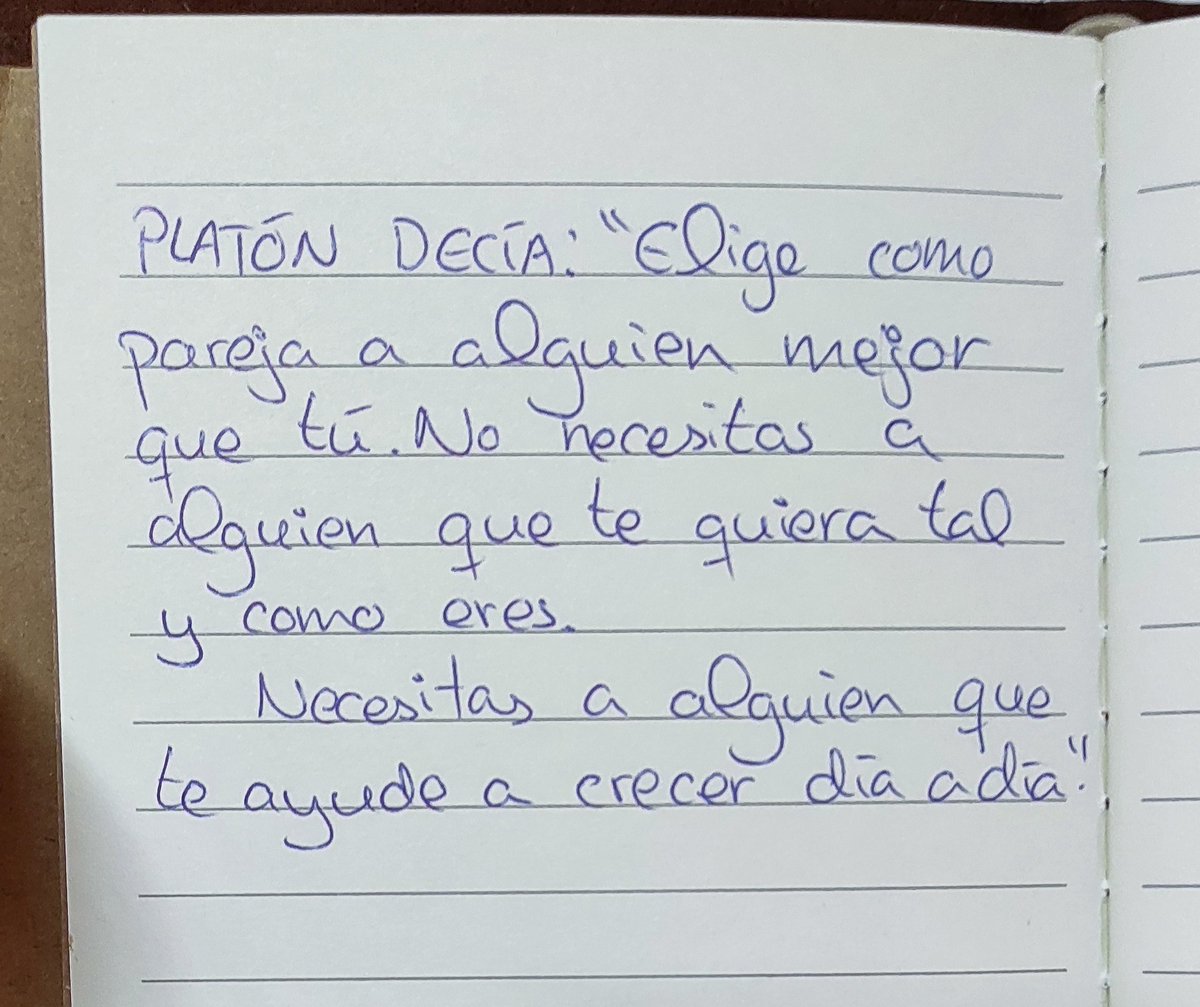 PLATÓN DECÍA: "Elige como
pareja a alguien mejor
que tú. No necesitas a
alguien que te quiera tal
y como eres.
Necesitas a alguien que
te ayude a crecer día a día".